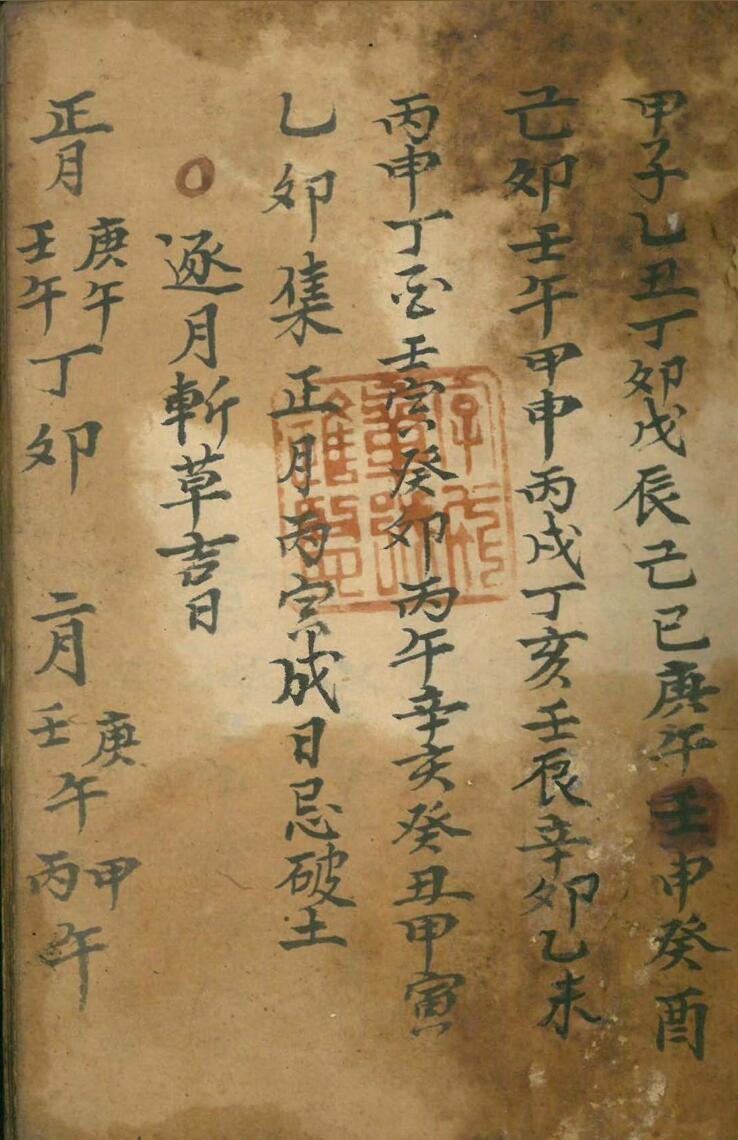 甲子乙丑丁卯戊辰己巳庚午壬申癸酉
己卯壬午甲申丙戌丁亥壬辰辛卯乙未
丙申丁酉壬寅癸卯丙午辛亥癸丑甲寅
乙卯集正月丙寅成日忌破土
○逐月斬草吉日
正月庚午壬午丁卯 二月庚午壬午甲午丙午